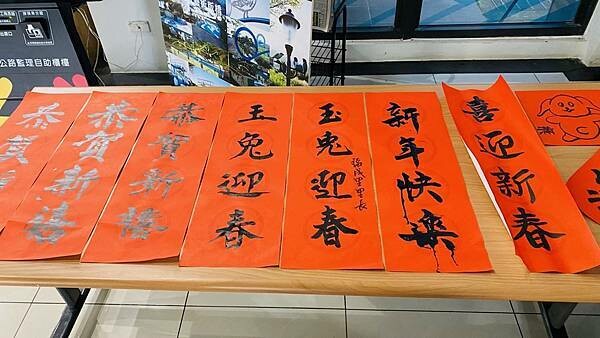 公路監理自助櫃檯
恭賀新
恭賀新禧
恭賀新禧
玉兔迎春
玉兔迎春
里里長
新年快樂
喜迎新春